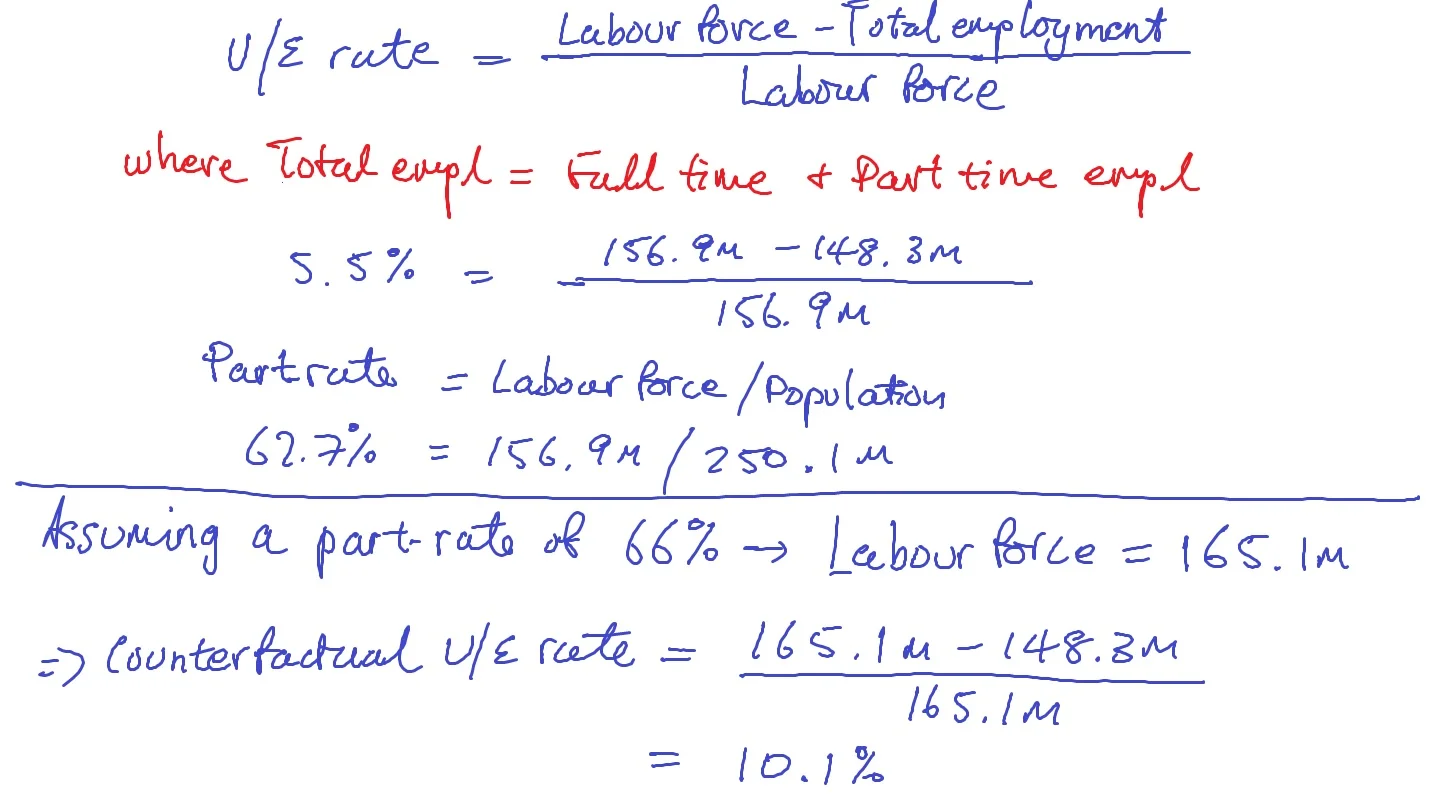 U/E rate = Labour force - Total employment
Labour force
where Total empl = Full time + Part time empl
5.5% = 156.9M - 148.3M
156.9M
Part rate = Labour force / Population
62.7% = 156.9M / 250.1M
Assuming a part-rate of 66% → Labour force = 165.1M
=> Counterfactual U/E rate = 165.1M - 148.3M
165.1M
= 10.1%